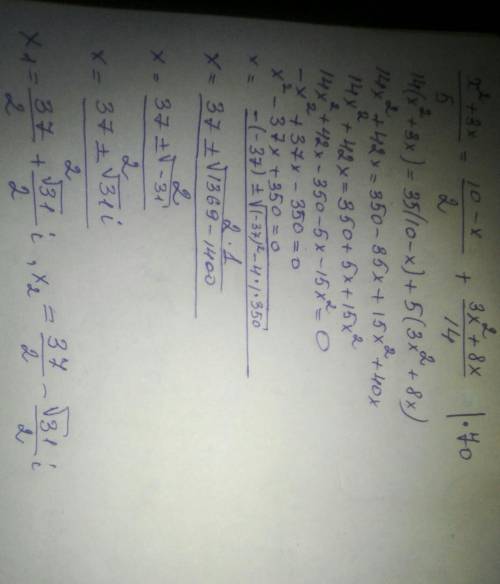 x²+3x/5 = 10-x/2 + 3x²+8x/14 |·70
14(x²+3x)=35(10-x)+5(3x²+8x)
14x²+42x=350-35x+15x²+40x
14x²+42x=350+5x+15x²
14x²+42x-350-5x-15x²=0
-x²+37x-350=0
x²-37x+350=0
x = -(-37)±√(-37)²-4·1·350 / 2·1
x = 37±√1369-1400 / 2
x = 37±√-31 / 2
x = 37±√31i / 2
x1 = 37/2 + √31/2 i, x2 = 37/2 - √31/2 i